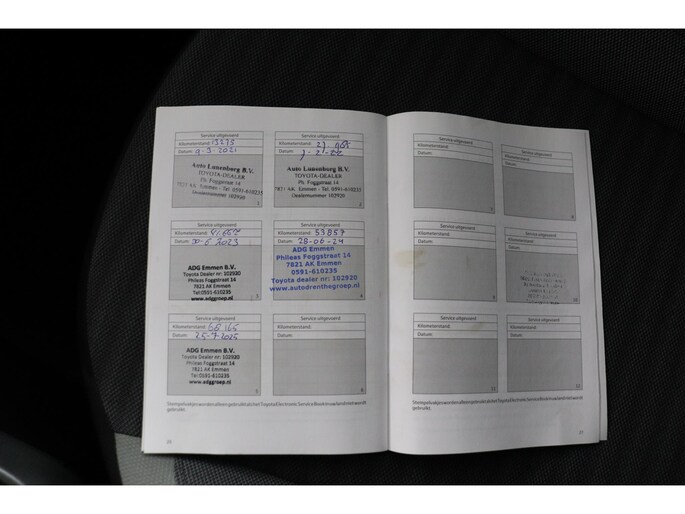 Service uitgevoerd
Kilometerstand: 13275
Datum: 9-3-2021
Auto Lunenburg B.V.
TOYOTA-DEALER
Ph. Foggstraat 14
7821 AK Emmen - Tel. 0591-610235
Dealernummer 102920
1
Service uitgevoerd
Kilometerstand:
Datum:
Auto Lunenburg B.V.
TOYOTA-DEALER
Ph. Foggstraat 14
7821 AK Emmen - Tel. 0591-610235
Dealernummer 102920
2
Service uitgevoerd
Kilometerstand:
Datum: 30-6 2023
ADG Emmen B.V.
Toyota Dealer nr: 102920
Phileas Foggstraat 14
7821 AK Emmen
Tel:0591-610235
www.adggroep.nl
3
Service uitgevoerd
Kilometerstand: 53857
Datum: 28-06-24
ADG Emmen B.V.
Phileas Foggstraat 14
7821 AK Emmen
0591-610235
Toyota dealer nr: 102920
www.autodrenthegroep.nl
4
Service uitgevoerd
Kilometerstand: 66 164
Datum: 25-7-2025
ADG Emmen B.V.
Toyota Dealer nr: 102920
Phileas Foggstraat 14
7821 AK Emmen
Tel:0591-610235
www.adggroep.nl
5
Service uitgevoerd
Kilometerstand:
Datum:
6
26
Service uitgevoerd
Kilometerstand:
Datum:
7
Service uitgevoerd
Kilometerstand:
Datum:
8
Service uitgevoerd
Kilometerstand:
Datum:
9
Service uitgevoerd
Kilometerstand:
Datum:
10
Service uitgevoerd
Kilometerstand:
Datum:
11
Service uitgevoerd
Kilometerstand:
Datum:
12
27